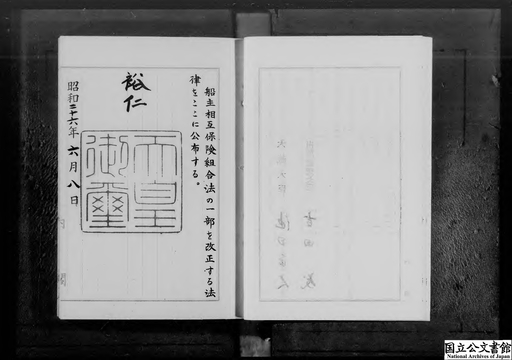 船主相互保険組合法の一部を改正する法
律をここに公布する。
裕仁
天皇
御璽
昭和二十六年六月八日
内閣
国立公文書館
National Archives of Japan